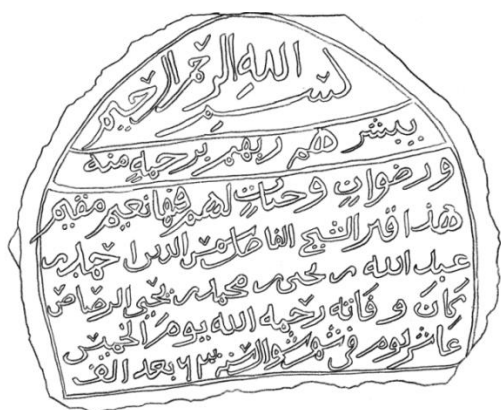 بسم الله الرحمن الرحيم
يبشرهم ربهم برحمة منه
ورضوان وجنات لهم فيها نعيم مقيم
هذا قبر الشيخ الفاضل شمس الدين احمد بن
عبد الله بن يحيى بن محمد بن يحيى الرصاص
كان وفاته رحمه الله يوم الخميس
عاشر يوم في شهر شوال سنة بعد الف